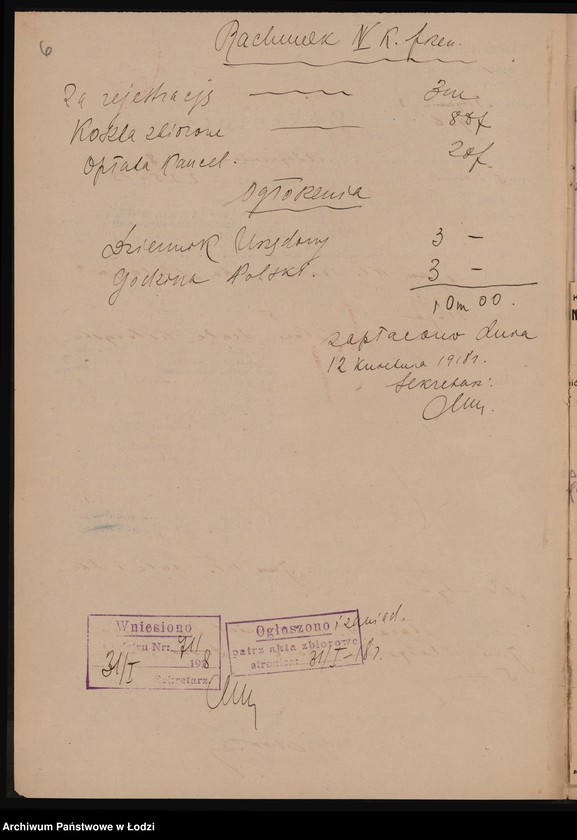 6
Rachunek IV R. fren.
Za rejestrację — 3m
Koszta zbiorowe — 80f
Opłata Kancel. 20f.
Ogłoszenia
Dziennik Urzędowy 3 —
Godzina Polski. 3 —
10m 00.
zapłacono dnia
12 Kwietnia 1918r.
Sekretarz:
Wniesiono
Nr: 71/
31/I 1918
Sekretarz
Ogłoszono i zawiad.
patrz akta zbiorowe
stronica: 31/I-18r.
Archiwum Państwowe w Łodzi